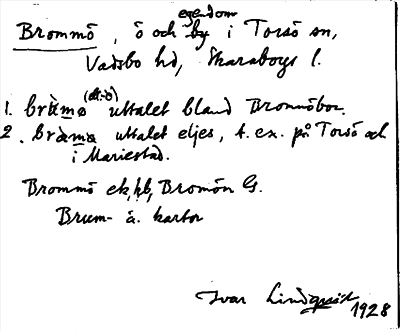 egendom
Brommö, ö och by i Torsö sn,
Vadsbo hd, Skaraborgs l.
(alt. -ö)
1. bràmø uttalet bland Brommöbor.
2. bràmə uttalet eljes, t. ex. på Torsö och
i Mariestad.
Brommö ek, kb, Bromön G.
Brum- ä. kartor
Ivar Lindquist
1928